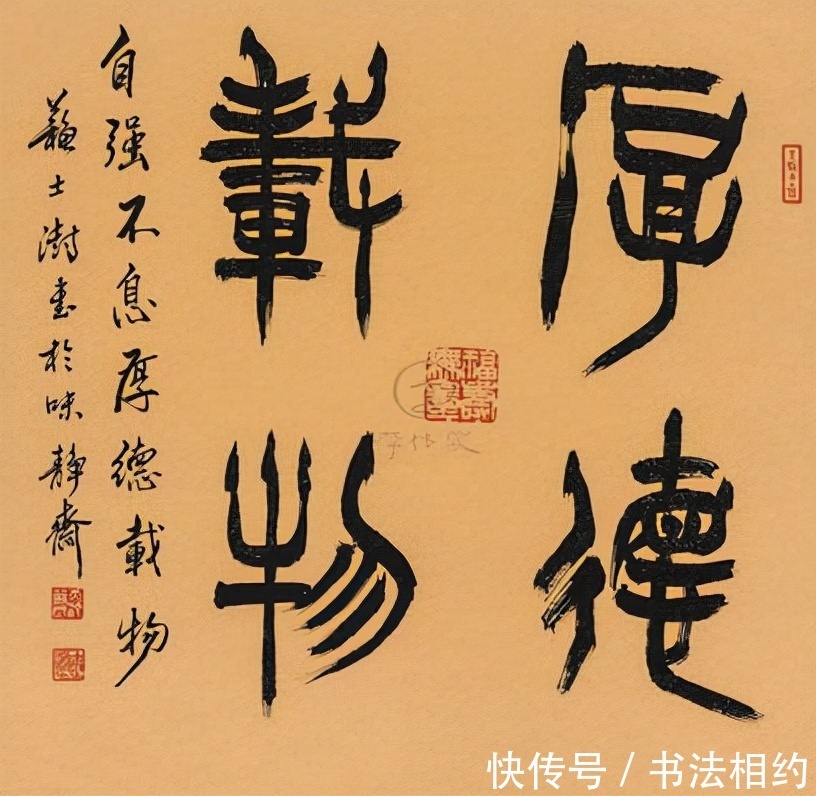 厚德
載物
自强不息厚德載物
蘇士澍書於味静齋
福壽無疆
快传号 / 书法相约